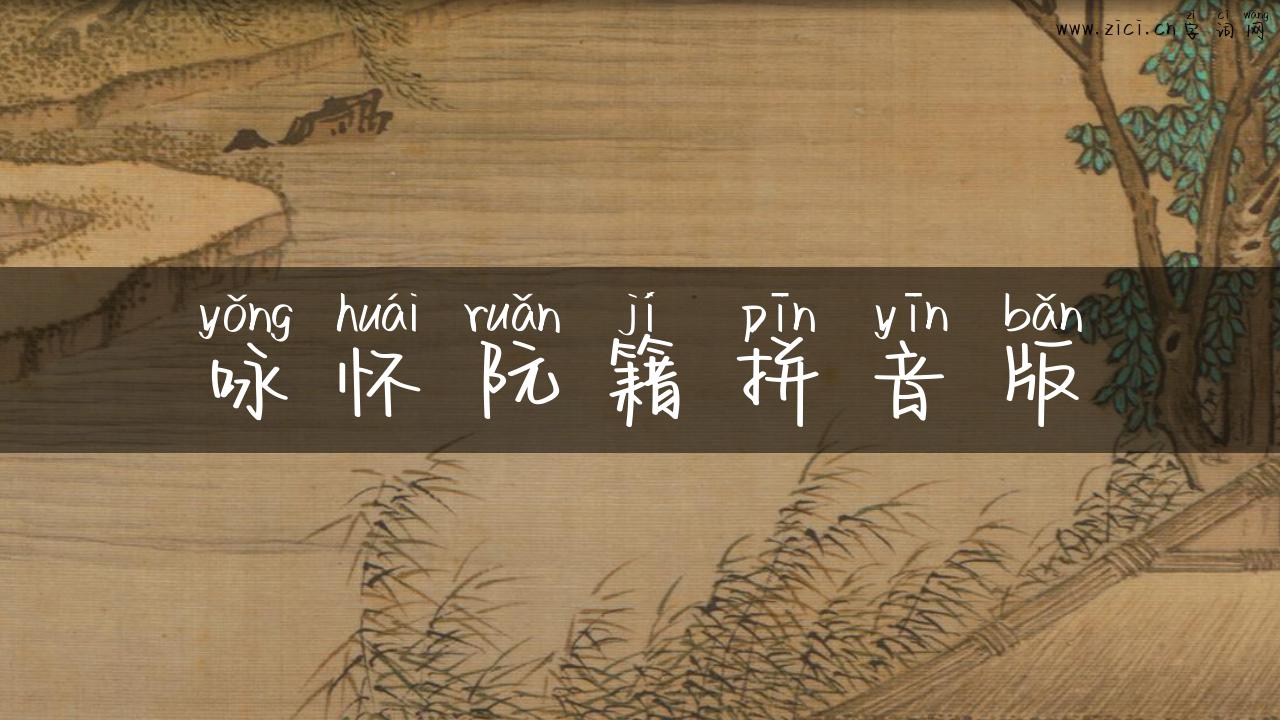 zì cí wǎng
www.zici.cn 字词网
yǒng huái ruǎn jí pīn yīn bǎn
咏怀阮籍拼音版